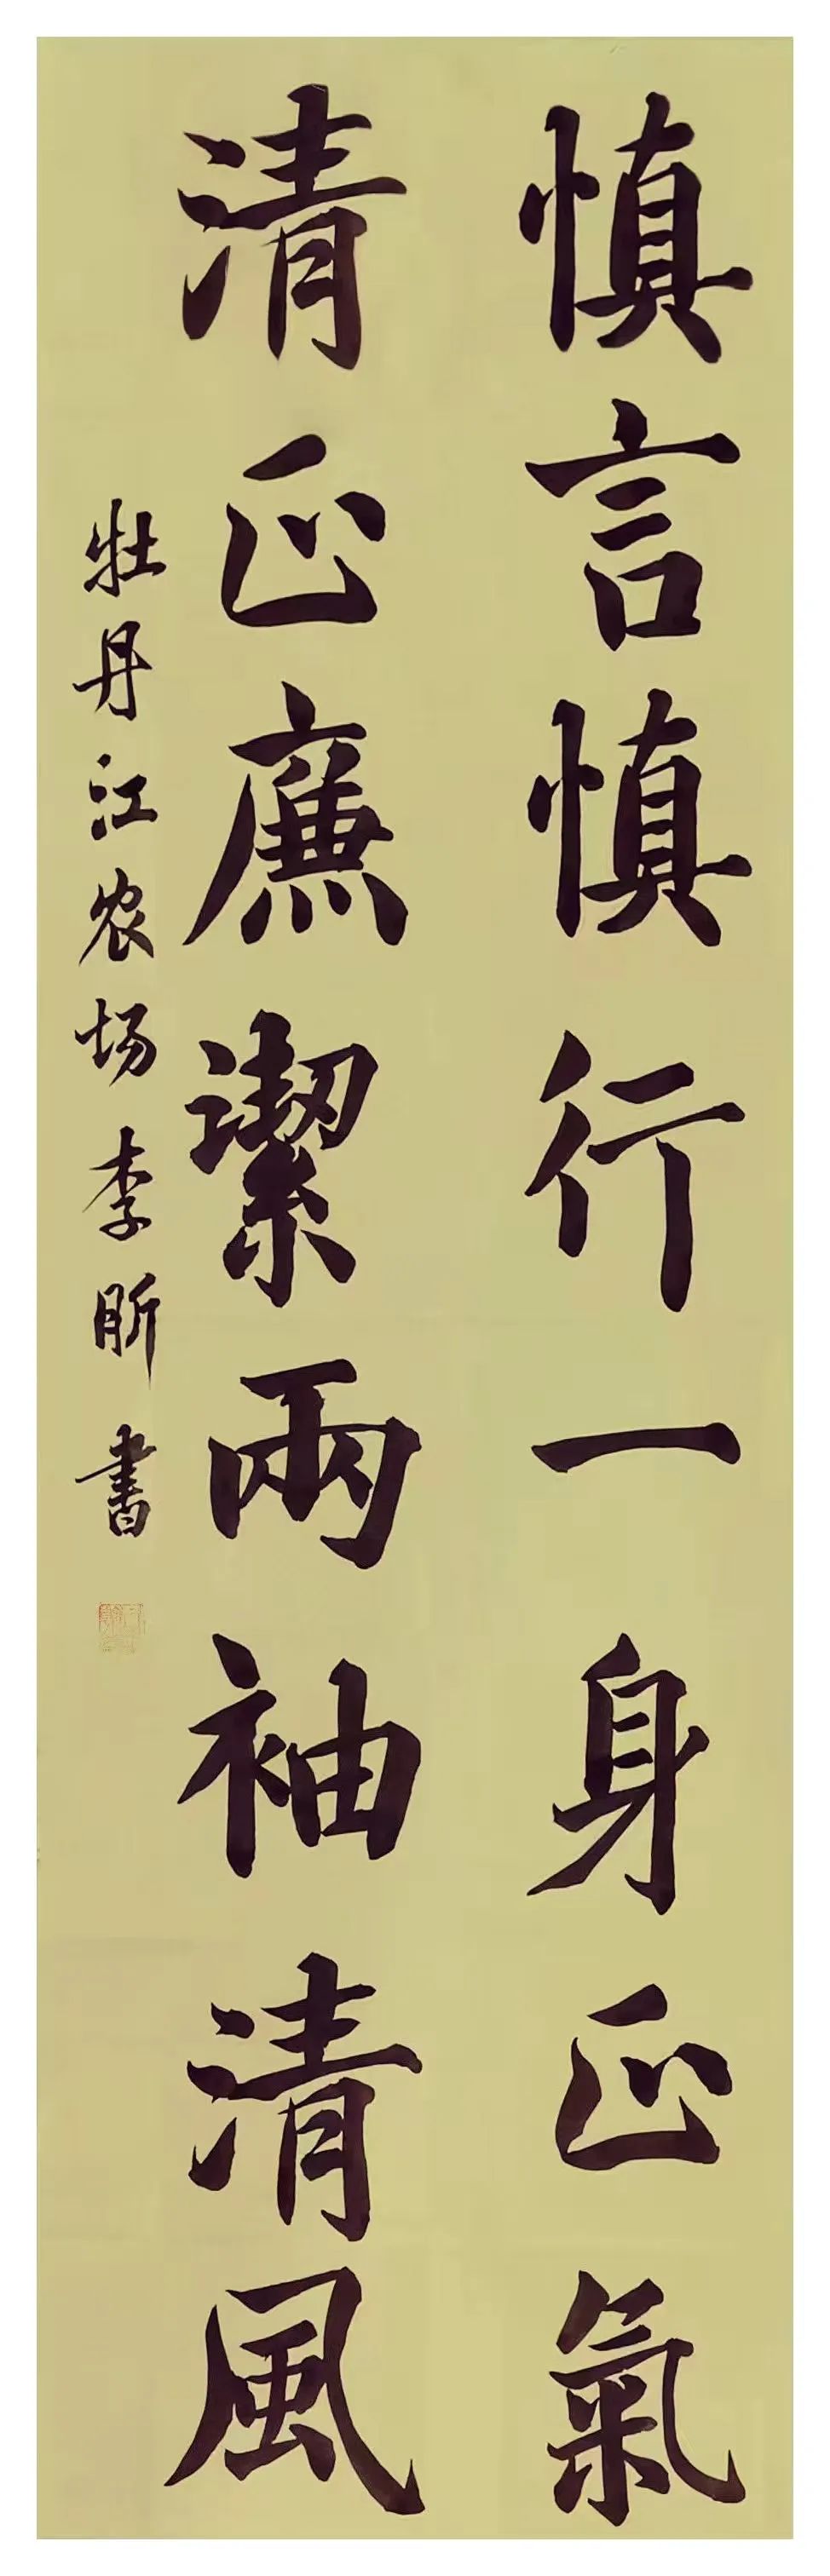 慎言慎行一身正氣
清正廉潔兩袖清風
牡丹江农场李昕書